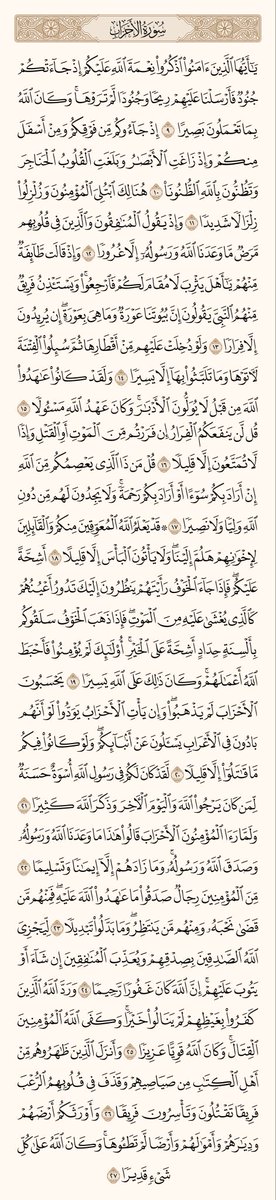 سُورَةُ الأَحْزَابِ
يَـٰٓأَيُّهَا ٱلَّذِينَ ءَامَنُوا۟ ٱذْكُرُوا۟ نِعْمَةَ ٱللَّهِ عَلَيْكُمْ إِذْ جَآءَتْكُمْ
جُنُودٌ فَأَرْسَلْنَا عَلَيْهِمْ رِيحًا وَجُنُودًا لَّمْ تَرَوْهَا ۚ وَكَانَ ٱللَّهُ
بِمَا تَعْمَلُونَ بَصِيرًا ٩ إِذْ جَآءُوكُم مِّن فَوْقِكُمْ وَمِنْ أَسْفَلَ
مِنكُمْ وَإِذْ زَاغَتِ ٱلْأَبْصَـٰرُ وَبَلَغَتِ ٱلْقُلُوبُ ٱلْحَنَاجِرَ
وَتَظُنُّونَ بِٱللَّهِ ٱلظُّنُونَا۠ ١٠ هُنَالِكَ ٱبْتُلِىَ ٱلْمُؤْمِنُونَ وَزُلْزِلُوا۟
زِلْزَالًا شَدِيدًا ١١ وَإِذْ يَقُولُ ٱلْمُنَـٰفِقُونَ وَٱلَّذِينَ فِى قُلُوبِهِم
مَّرَضٌ مَّا وَعَدَنَا ٱللَّهُ وَرَسُولُهُۥٓ إِلَّا غُرُورًا ١٢ وَإِذْ قَالَت طَّآئِفَةٌ
مِّنْهُمْ يَـٰٓأَهْلَ يَثْرِبَ لَا مُقَامَ لَكُمْ فَٱرْجِعُوا۟ ۚ وَيَسْتَـْٔذِنُ فَرِيقٌ
مِّنْهُمُ ٱلنَّبِىَّ يَقُولُونَ إِنَّ بُيُوتَنَا عَوْرَةٌ وَمَا هِىَ بِعَوْرَةٍ ۖ إِن يُرِيدُونَ
إِلَّا فِرَارًا ١٣ وَلَوْ دُخِلَتْ عَلَيْهِم مِّنْ أَقْطَارِهَا ثُمَّ سُئِلُوا۟ ٱلْفِتْنَةَ
لَـَٔاتَوْهَا وَمَا تَلَبَّثُوا۟ بِهَآ إِلَّا يَسِيرًا ١٤ وَلَقَدْ كَانُوا۟ عَـٰهَدُوا۟
ٱللَّهَ مِن قَبْلُ لَا يُوَلُّونَ ٱلْأَدْبَـٰرَ ۚ وَكَانَ عَهْدُ ٱللَّهِ مَسْـُٔولًا ١٥
قُل لَّن يَنفَعَكُمُ ٱلْفِرَارُ إِن فَرَرْتُم مِّنَ ٱلْمَوْتِ أَوِ ٱلْقَتْلِ وَإِذًا
لَّا تُمَتَّعُونَ إِلَّا قَلِيلًا ١٦ قُلْ مَن ذَا ٱلَّذِى يَعْصِمُكُم مِّنَ ٱللَّهِ
إِنْ أَرَادَ بِكُمْ سُوٓءًا أَوْ أَرَادَ بِكُمْ رَحْمَةً ۚ وَلَا يَجِدُونَ لَهُم مِّن دُونِ
ٱللَّهِ وَلِيًّا وَلَا نَصِيرًا ١٧ ۞ قَدْ يَعْلَمُ ٱللَّهُ ٱلْمُعَوِّقِينَ مِنكُمْ وَٱلْقَآئِلِينَ
لِإِخْوَٰنِهِمْ هَلُمَّ إِلَيْنَا ۖ وَلَا يَأْتُونَ ٱلْبَأْسَ إِلَّا قَلِيلًا ١٨ أَشِحَّةً
عَلَيْكُمْ ۖ فَإِذَا جَآءَ ٱلْخَوْفُ رَأَيْتَهُمْ يَنظُرُونَ إِلَيْكَ تَدُورُ أَعْيُنُهُمْ
كَٱلَّذِى يُغْشَىٰ عَلَيْهِ مِنَ ٱلْمَوْتِ ۖ فَإِذَا ذَهَبَ ٱلْخَوْفُ سَلَقُوكُم
بِأَلْسِنَةٍ حِدَادٍ أَشِحَّةً عَلَى ٱلْخَيْرِ ۚ أُو۟لَـٰٓئِكَ لَمْ يُؤْمِنُوا۟ فَأَحْبَطَ
ٱللَّهُ أَعْمَـٰلَهُمْ ۚ وَكَانَ ذَٰلِكَ عَلَى ٱللَّهِ يَسِيرًا ١٩ يَحْسَبُونَ
ٱلْأَحْزَابَ لَمْ يَذْهَبُوا۟ ۖ وَإِن يَأْتِ ٱلْأَحْزَابُ يَوَدُّوا۟ لَوْ أَنَّهُم
بَادُونَ فِى ٱلْأَعْرَابِ يَسْـَٔلُونَ عَنْ أَنۢبَآئِكُمْ ۖ وَلَوْ كَانُوا۟ فِيكُم
مَّا قَـٰتَلُوٓا۟ إِلَّا قَلِيلًا ٢٠ لَّقَدْ كَانَ لَكُمْ فِى رَسُولِ ٱللَّهِ أُسْوَةٌ حَسَنَةٌ
لِّمَن كَانَ يَرْجُوا۟ ٱللَّهَ وَٱلْيَوْمَ ٱلْـَٔاخِرَ وَذَكَرَ ٱللَّهَ كَثِيرًا ٢١
وَلَمَّا رَءَا ٱلْمُؤْمِنُونَ ٱلْأَحْزَابَ قَالُوا۟ هَـٰذَا مَا وَعَدَنَا ٱللَّهُ وَرَسُولُهُۥ
وَصَدَقَ ٱللَّهُ وَرَسُولُهُۥ ۚ وَمَا زَادَهُمْ إِلَّآ إِيمَـٰنًا وَتَسْلِيمًا ٢٢
مِّنَ ٱلْمُؤْمِنِينَ رِجَالٌ صَدَقُوا۟ مَا عَـٰهَدُوا۟ ٱللَّهَ عَلَيْهِ ۖ فَمِنْهُم مَّن
قَضَىٰ نَحْبَهُۥ وَمِنْهُم مَّن يَنتَظِرُ ۖ وَمَا بَدَّلُوا۟ تَبْدِيلًا ٢٣ لِّيَجْزِىَ
ٱللَّهُ ٱلصَّـٰدِقِينَ بِصِدْقِهِمْ وَيُعَذِّبَ ٱلْمُنَـٰفِقِينَ إِن شَآءَ أَوْ
يَتُوبَ عَلَيْهِمْ ۚ إِنَّ ٱللَّهَ كَانَ غَفُورًا رَّحِيمًا ٢٤ وَرَدَّ ٱللَّهُ ٱلَّذِينَ
كَفَرُوا۟ بِغَيْظِهِمْ لَمْ يَنَالُوا۟ خَيْرًا ۚ وَكَفَى ٱللَّهُ ٱلْمُؤْمِنِينَ
ٱلْقِتَالَ ۚ وَكَانَ ٱللَّهُ قَوِيًّا عَزِيزًا ٢٥ وَأَنزَلَ ٱلَّذِينَ ظَـٰهَرُوهُم مِّنْ
أَهْلِ ٱلْكِتَـٰبِ مِن صَيَاصِيهِمْ وَقَذَفَ فِى قُلُوبِهِمُ ٱلرُّعْبَ
فَرِيقًا تَقْتُلُونَ وَتَأْسِرُونَ فَرِيقًا ٢٦ وَأَوْرَثَكُمْ أَرْضَهُمْ
وَدِيَـٰرَهُمْ وَأَمْوَٰلَهُمْ وَأَرْضًا لَّمْ تَطَـُٔوهَا ۚ وَكَانَ ٱللَّهُ عَلَىٰ كُلِّ
شَىْءٍ قَدِيرًا ٢٧